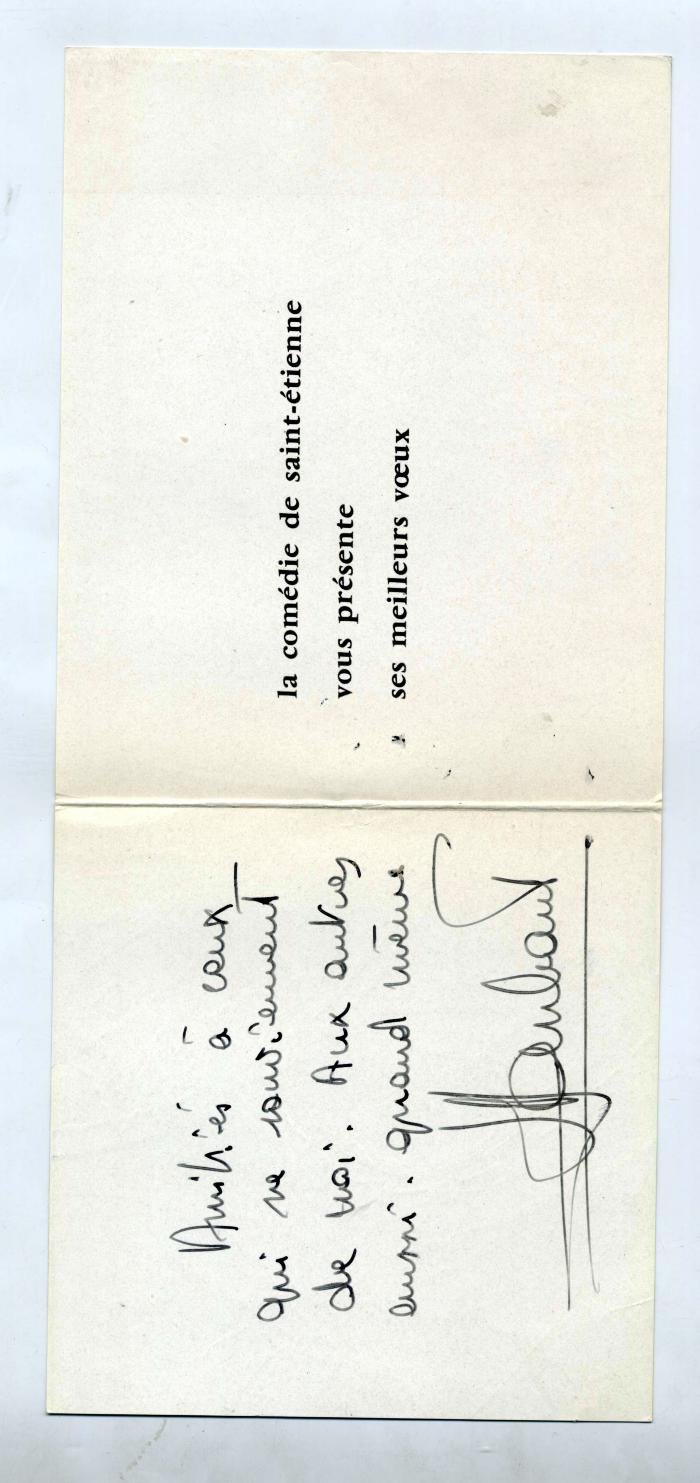 Amitiés à ceux
qui se souviennent
de moi. Aux autres
aussi. quand même
la comédie de saint-étienne
vous présente
ses meilleurs vœux